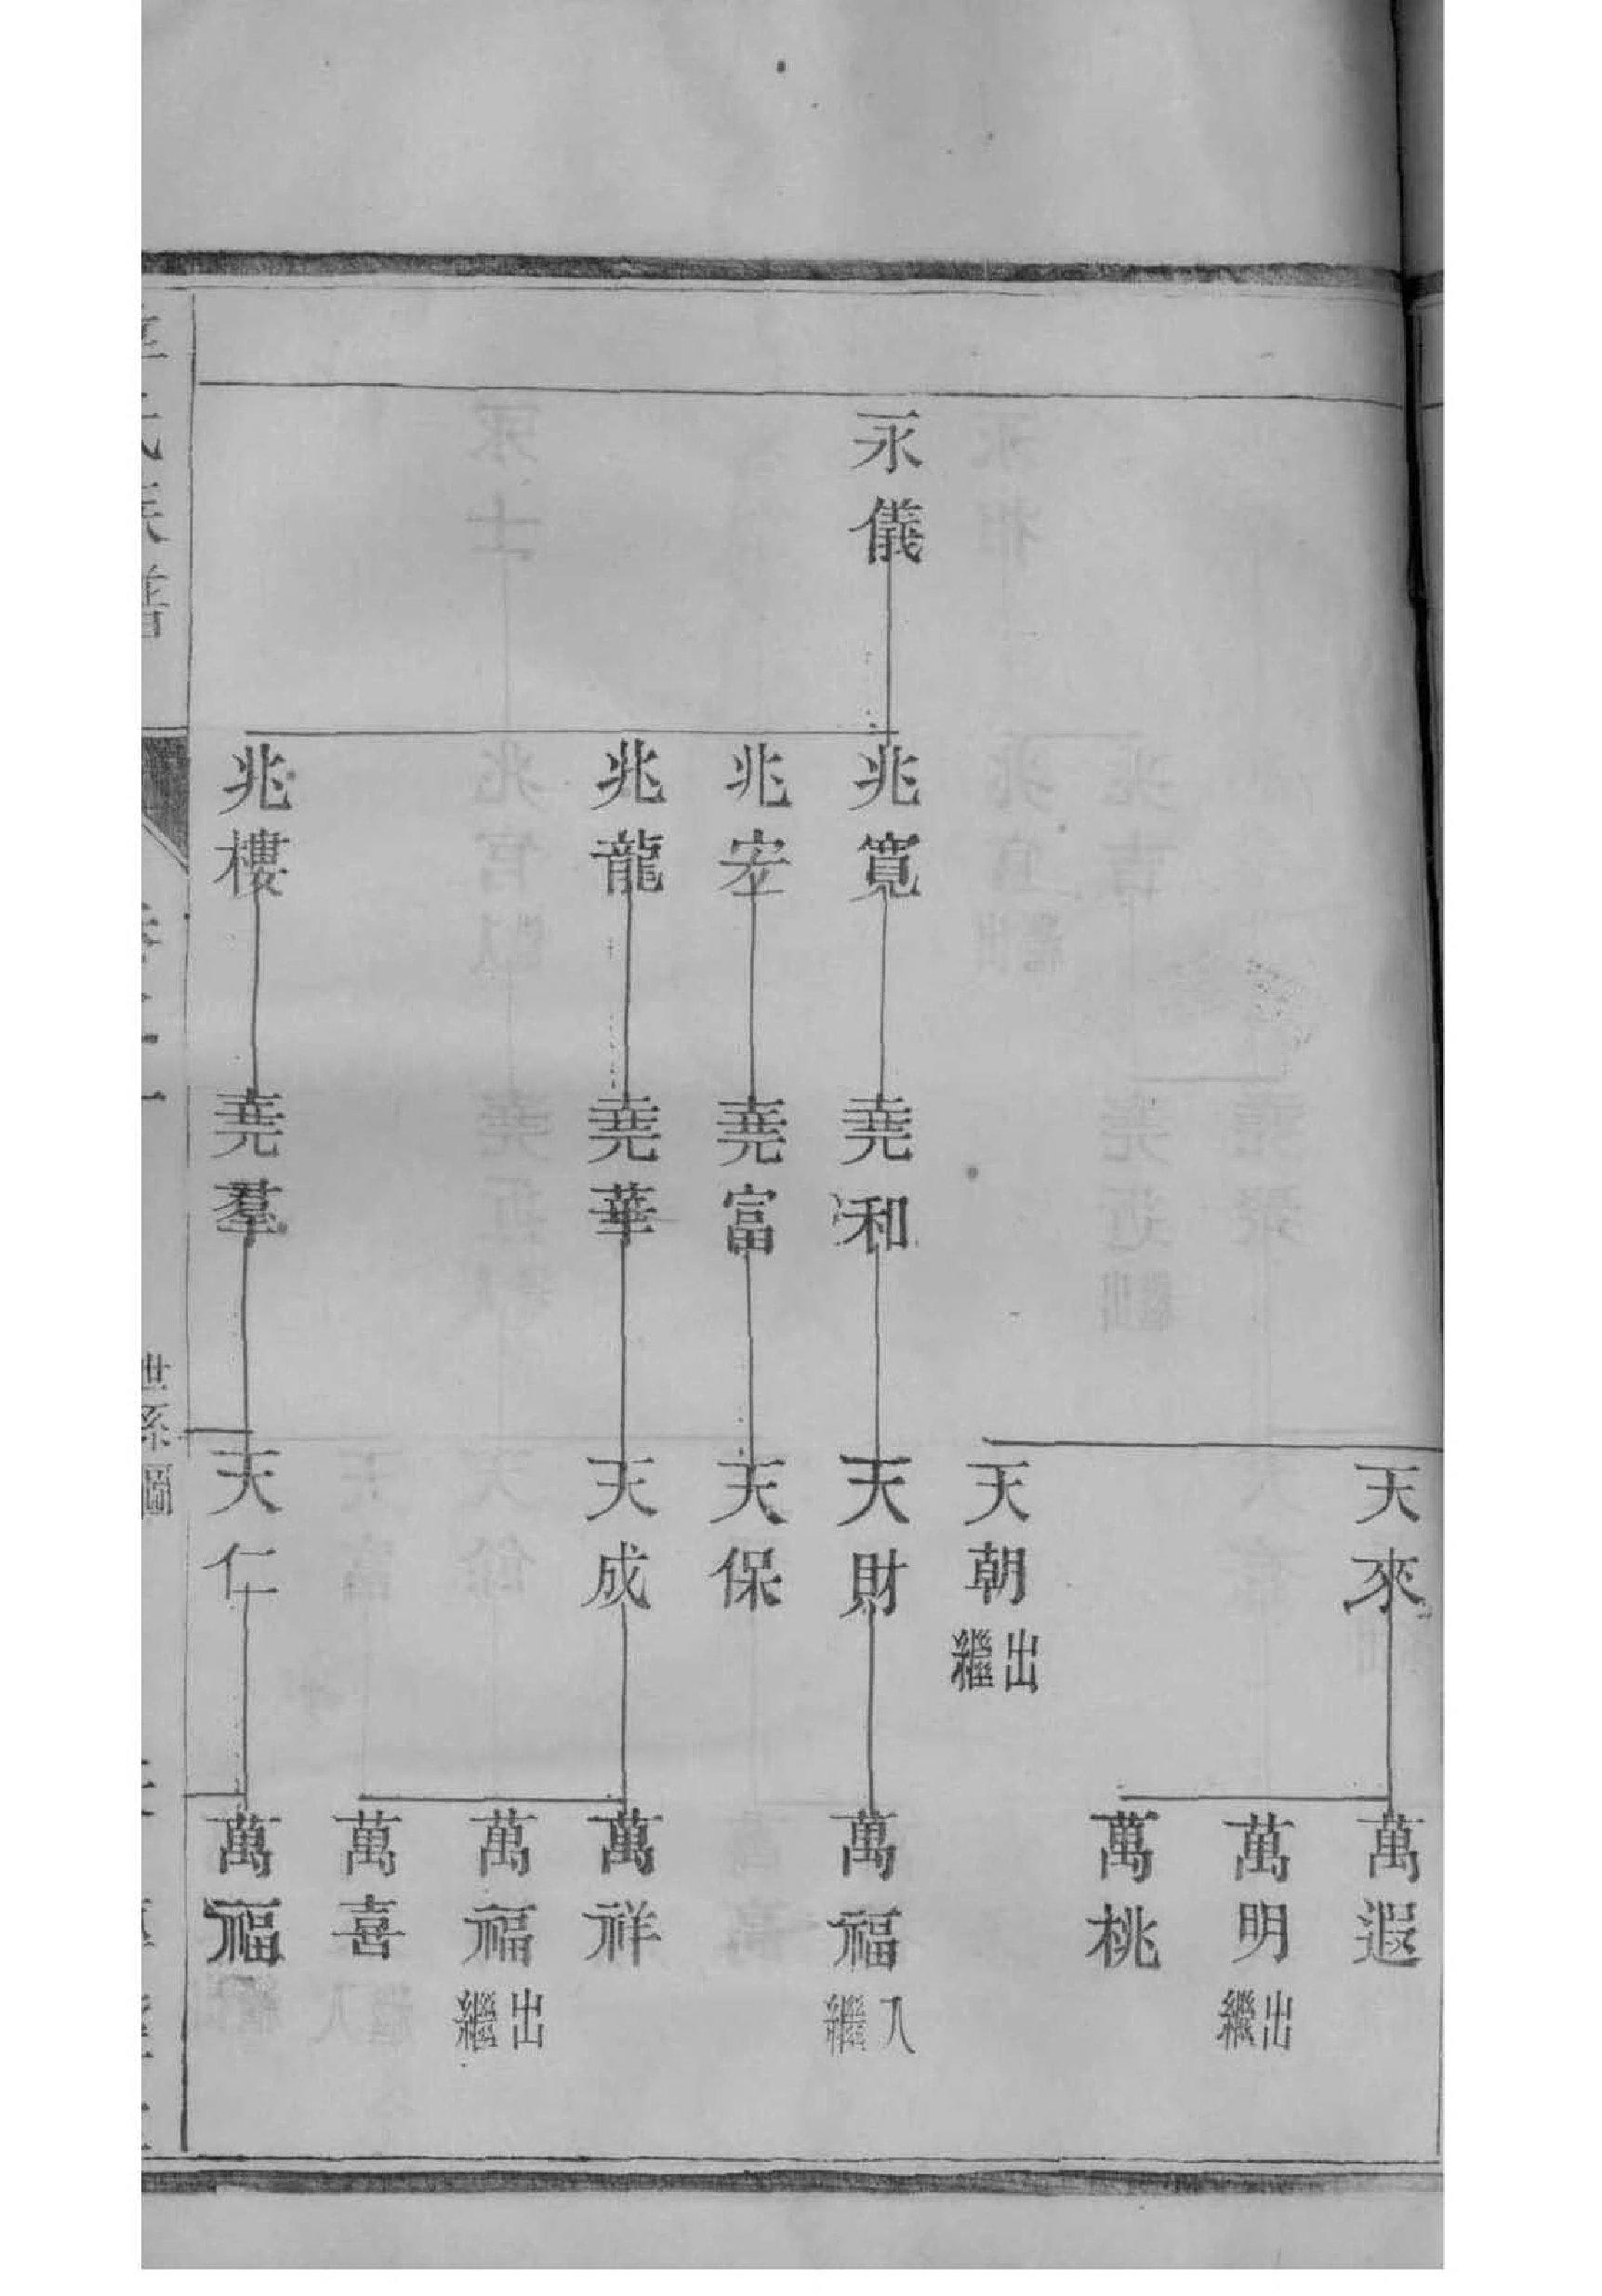 永儀
兆寬
兆宏
兆龍
兆樓
堯和
堯富
堯華
堯羣
天來
天朝 出繼
天財
天保
天成
天仁
萬遐
萬明 出繼
萬桃
萬福 入繼
萬祥
萬福 出繼
萬喜
萬福
氏族譜
世系圖